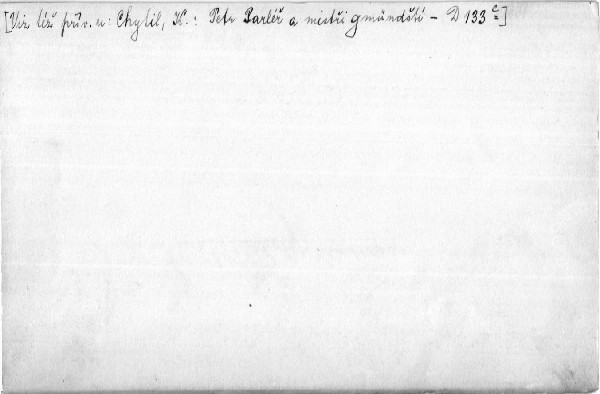 [Viz též přív. u: Chytil, K.: Petr Parléř a mistři gmündští - D 133 c]